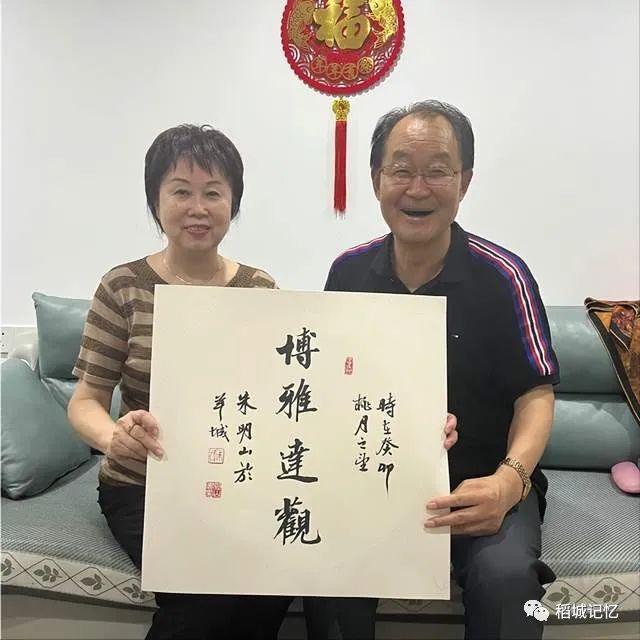 福
時在癸卯
桃月之望
博雅達觀
朱明山於
羊城
稻城记忆